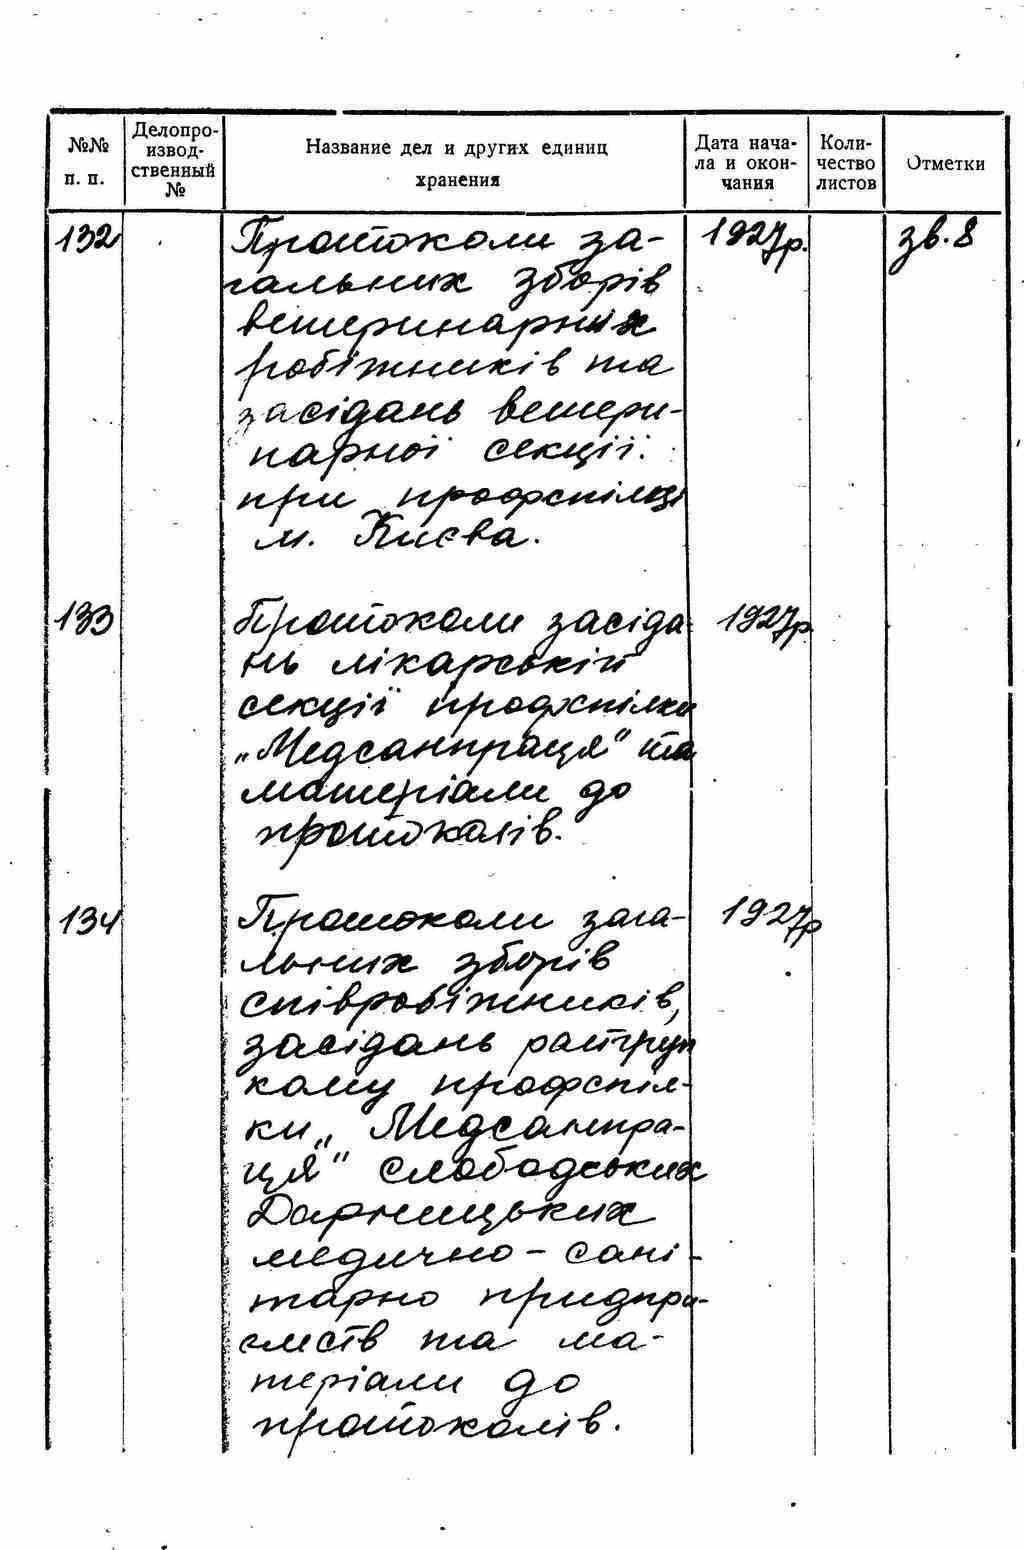 №№ п. п.
Делопро-
извод-
ственный
№
Название дел и других единиц
хранения
Дата нача-
ла и окон-
чания
Коли-
чество
листов
Отметки
132 Протоколи за- 1927р. зв. 8
гальних зборів
ветеринарних
робітників та
засідань ветери-
нарної секції
при профспілці
м. Києва.
133 Протоколи засіда 1927р
нь лікарській
секції профспілки
„Медсанпраця" та
матеріали до
протоколів.
134 Протоколи зага- 1927р
льних зборів
співробітників,
засідань райгруп
кому профспіл-
ки „Медсанпра-
ця" слободських
Дарницьких
медично-сані-
тарно придпри-
ємств та ма-
теріали до
протоколів.